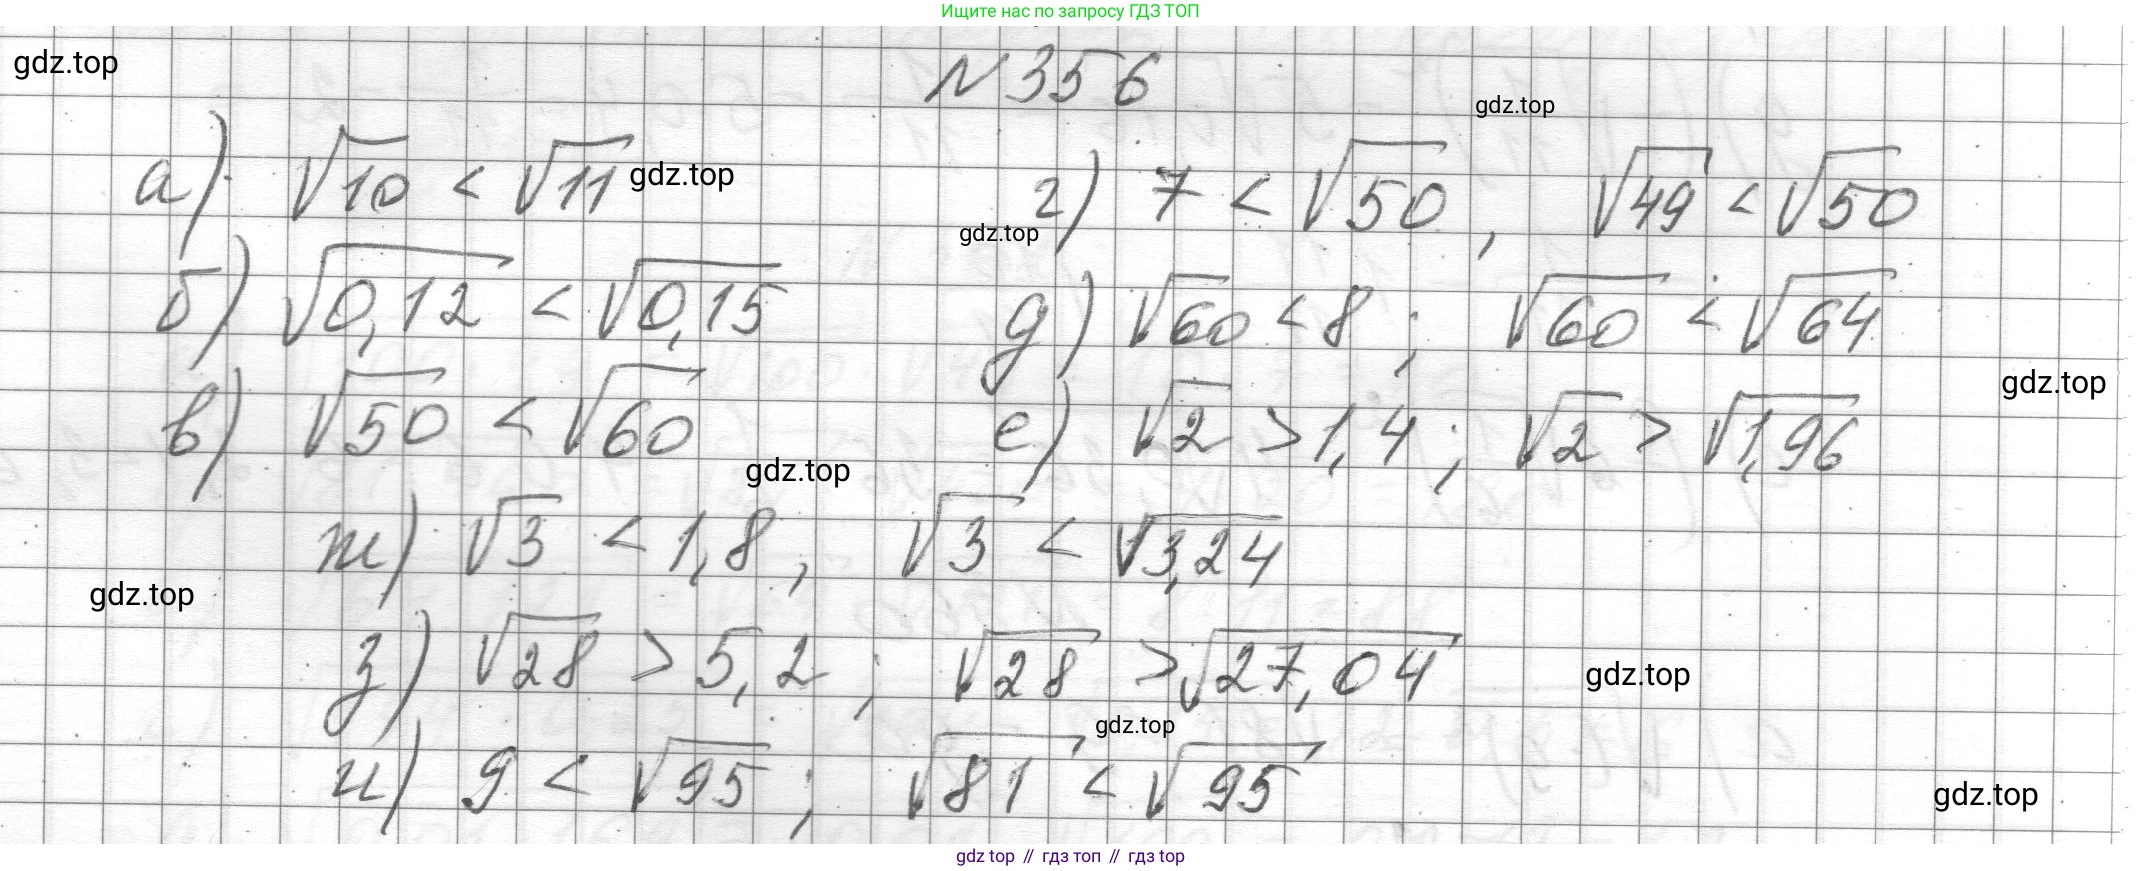 Ищите нас по запросу ГДЗ ТОП
gdz.top
N 356
gdz.top
а) √10 < √11 gdz.top
г) 7 < √50, √49 < √50
gdz.top
б) √0,12 < √0,15
д) √60 < 8; √60 < √64
gdz.top
в) √50 < √60
е) √2 > 1,4; √2 > √1,96
gdz.top
ж) √3 < 1,8, √3 < √3,24
gdz.top
з) √28 > 5,2; √28 > √27,04
gdz.top
gdz.top
и) 9 < √95; √81 < √95
gdz.top
gdz top // гдз топ // гдз top